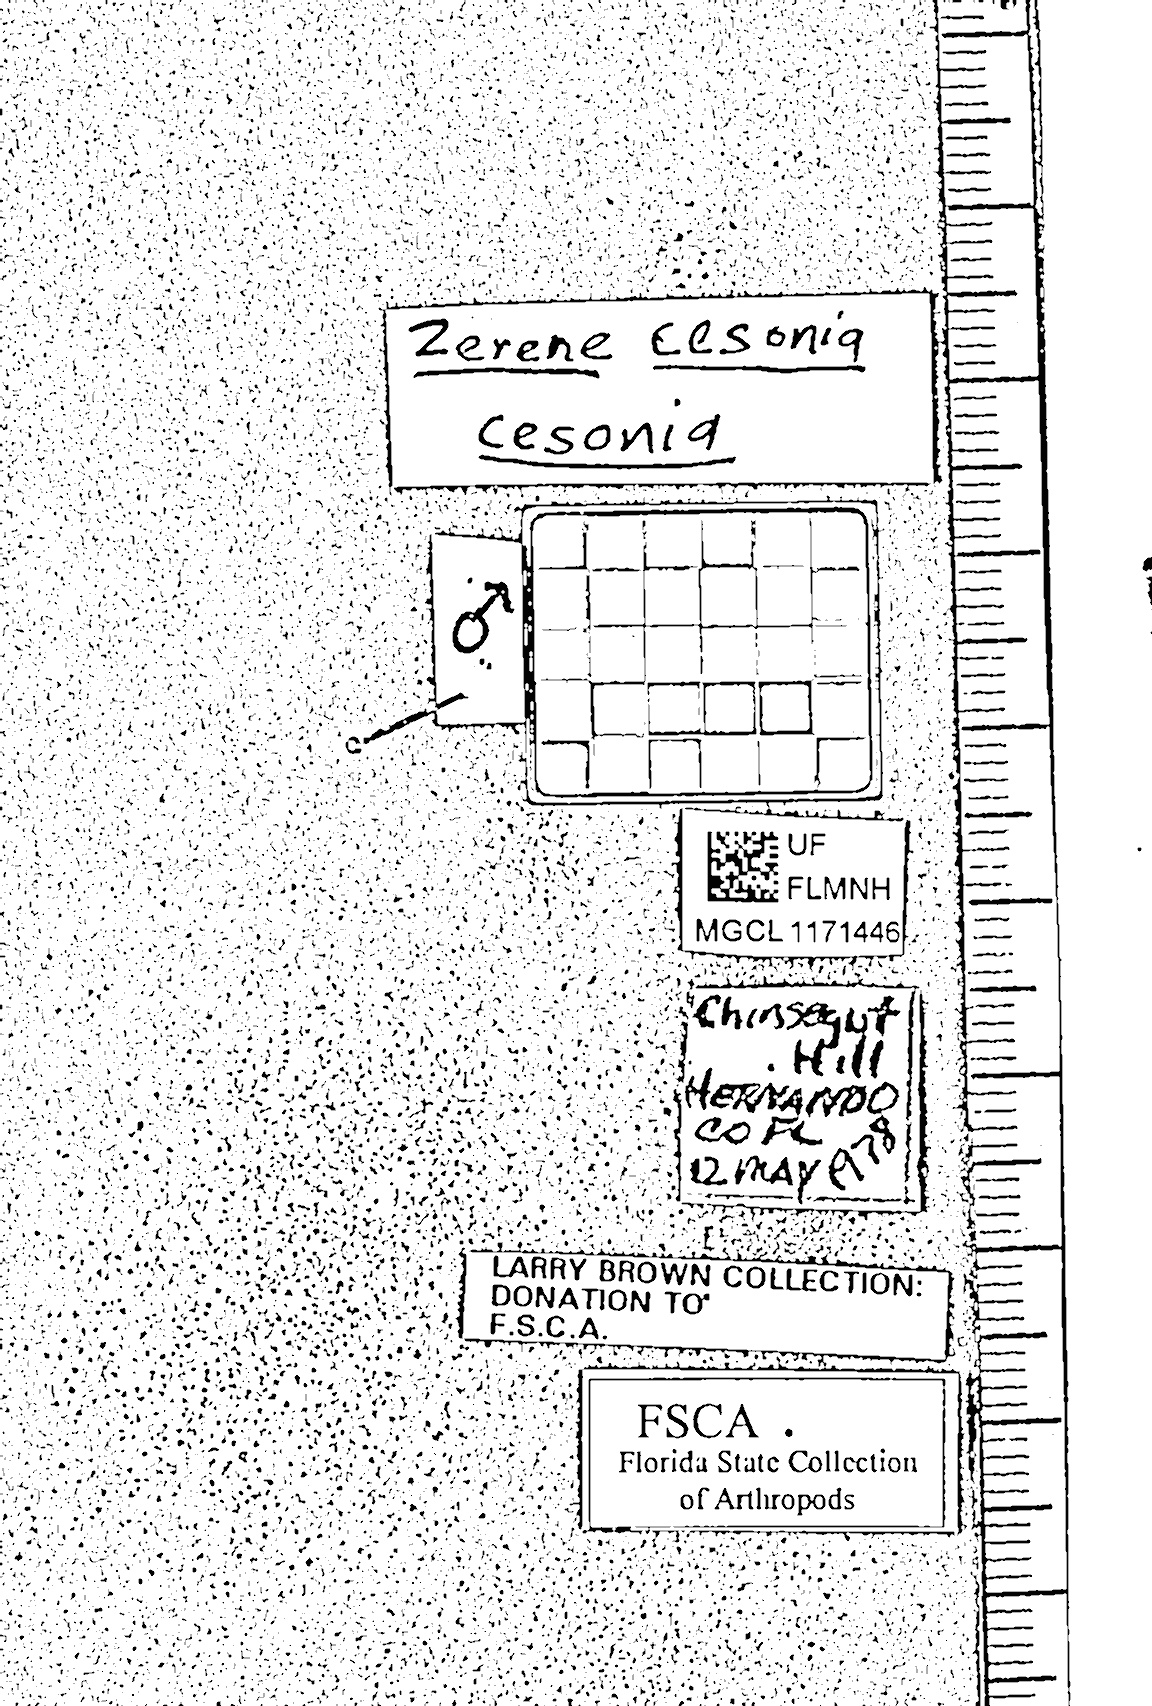 Zerene cesonia
cesonia
♂
UF
FLMNH
MGCL 1171446
Chinsegut
Hill
HERNANDO
CO FL
12 MAY 1978
LARRY BROWN COLLECTION:
DONATION TO
F.S.C.A.
FSCA
Florida State Collection
of Arthropods